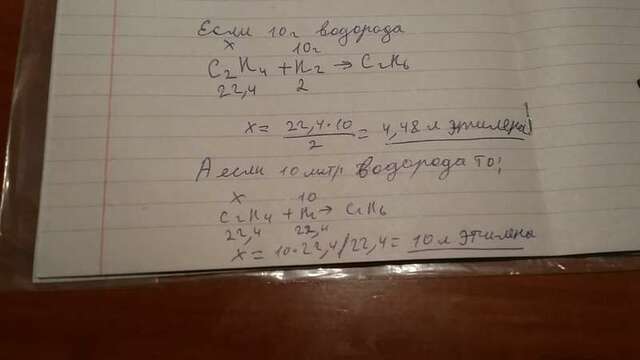 Если 10 г водорода
x 10г
C2H4 + H2 → C2H6
22,4 2
x = 22,4·10/2 = 4,48 л этилена!
А если 10 литр. водорода то;
x 10
C2H4 + H2 → C2H6
22,4 22,4
x = 10·22,4/22,4 = 10 л этилена